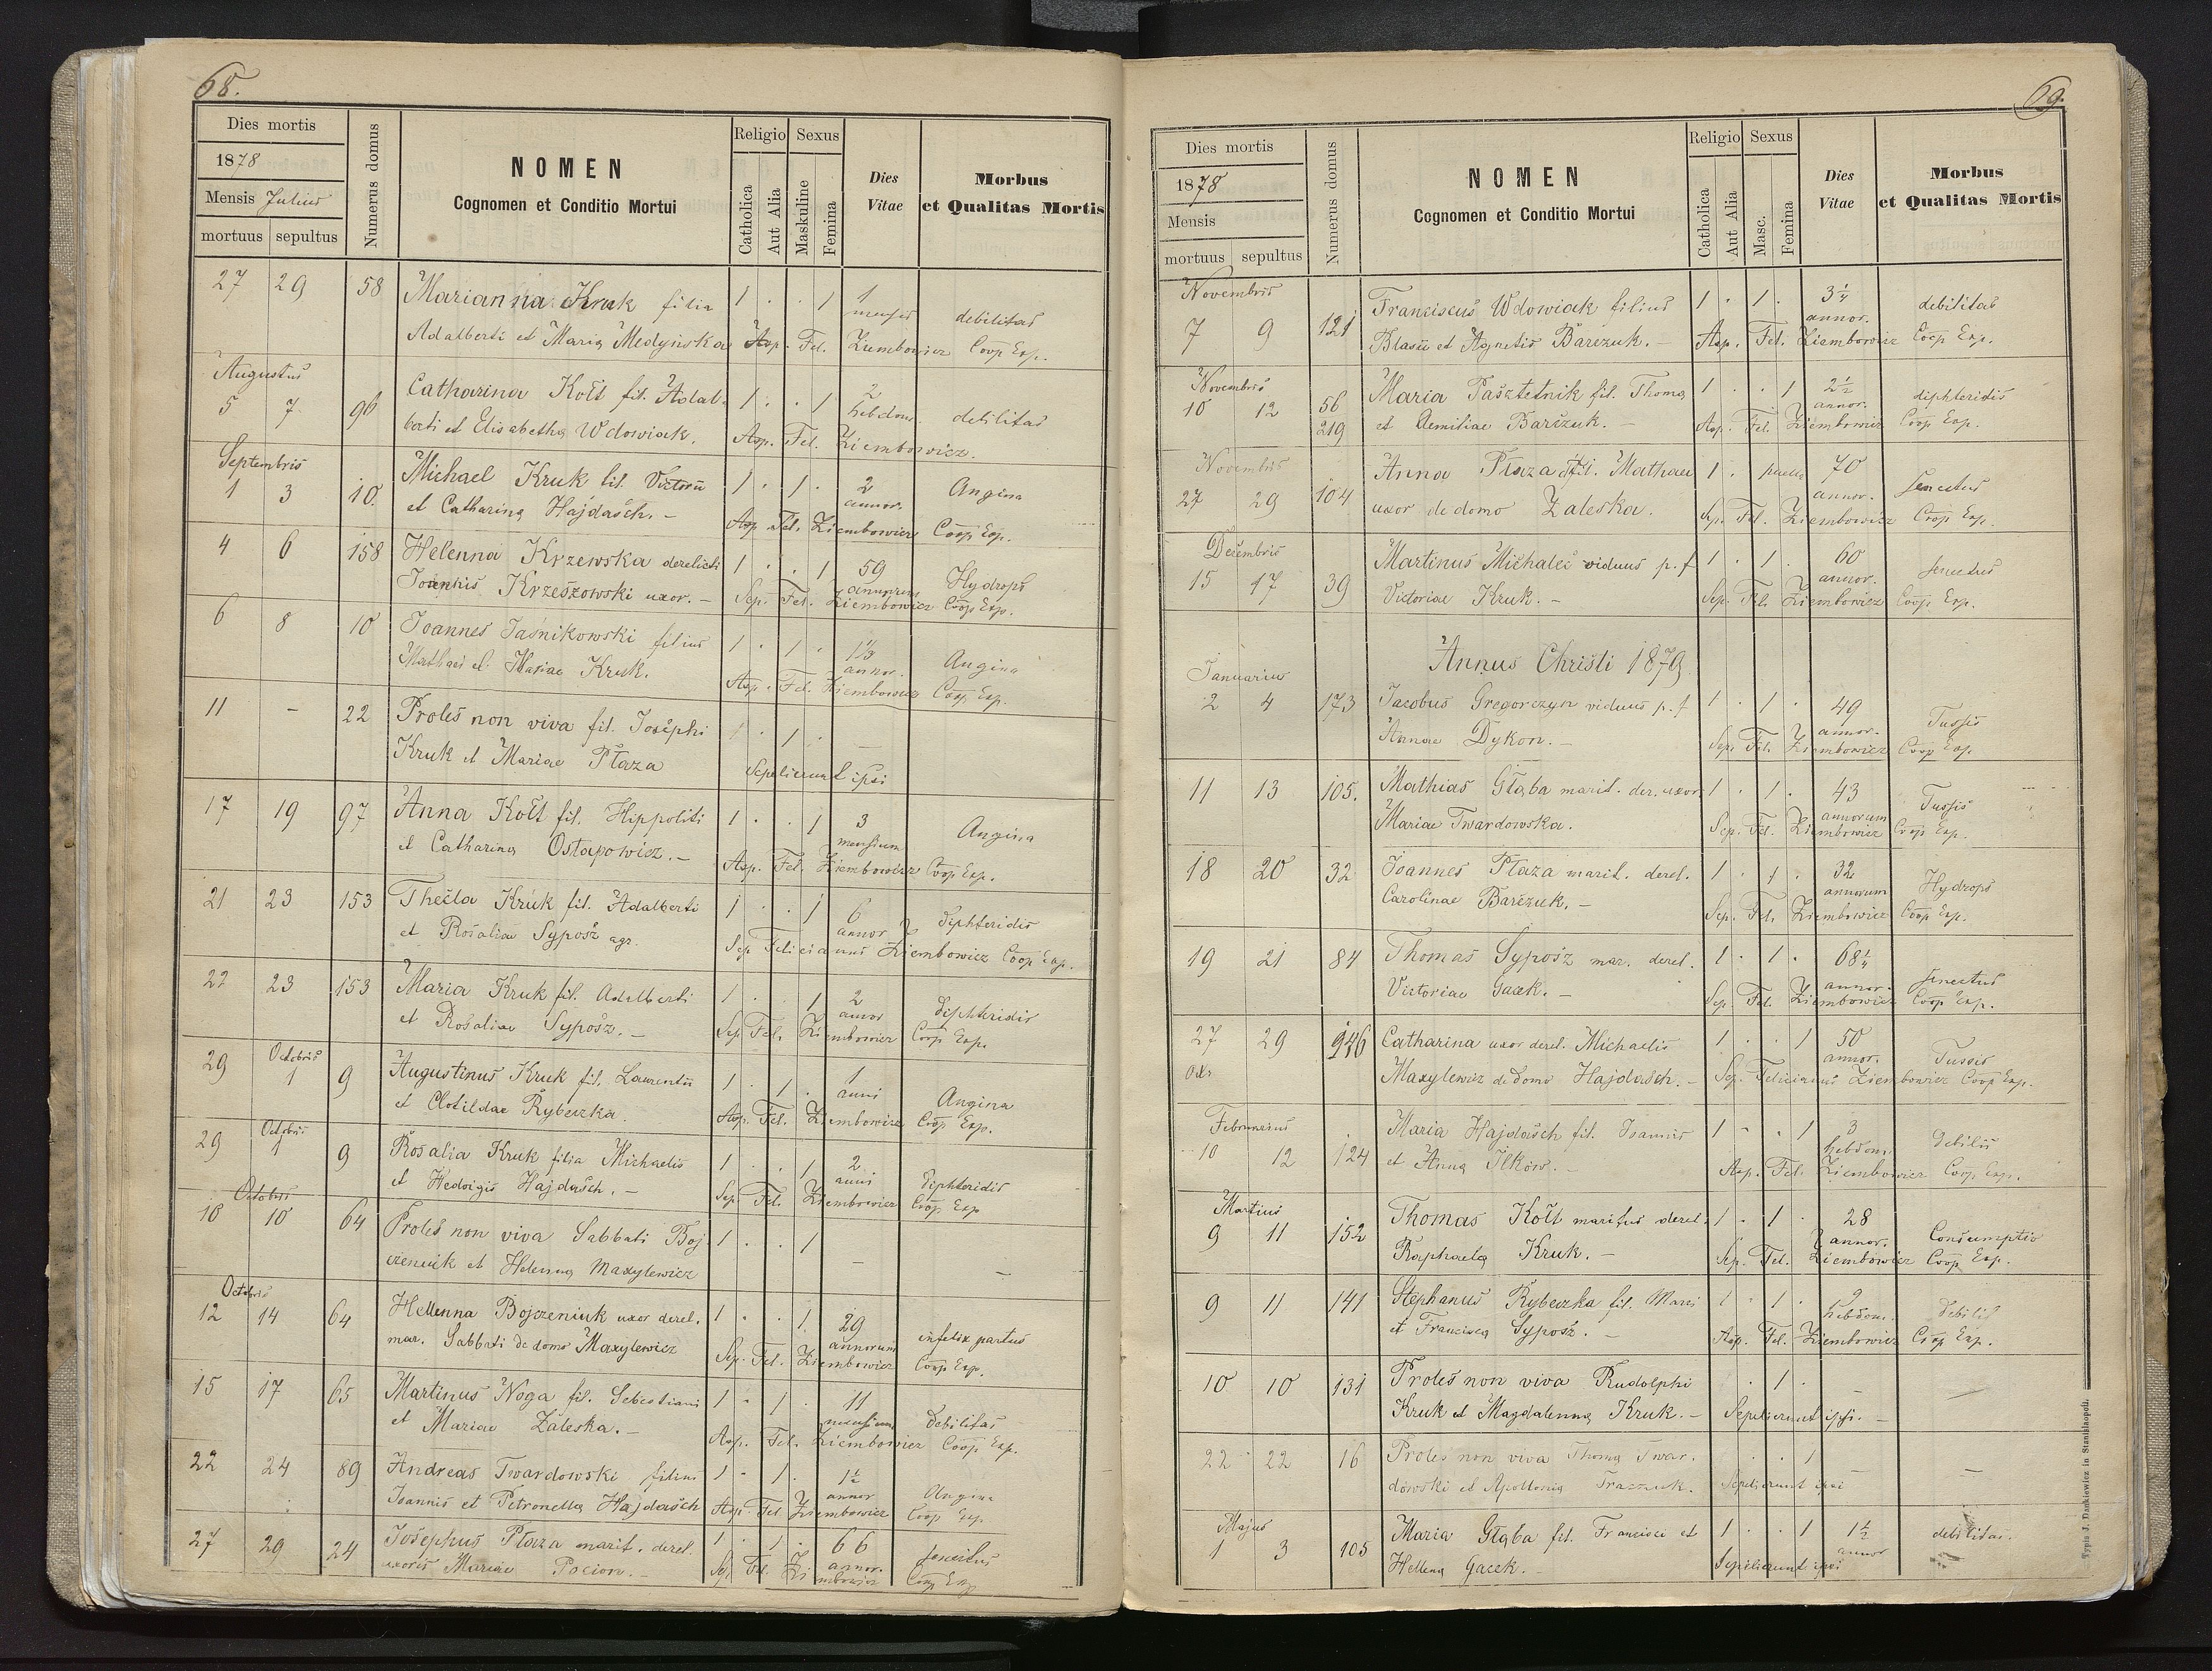 68.
Dies mortis
1878
Mensis Julius
mortuus sepultus
Numerus domus
NOMEN
Cognomen et Conditio Mortui
Religio
Catholica
Aut Alia
Sexus
Maskuline
Femina
Dies
Vitae
Morbus
et Qualitas Mortis
27 29 58 Marianna Kruk filia 1 . . 1 1 mensis debilitas
Adalberti et Maria Medyńska Asp. Fel. Ziembowicz Coop Exp.
Augustus
5 7 96 Catharina Kołt fil. Adal- 1 . . 1 2 hebdom. debilitas
berti et Elisabetha Wdowiak. Asp. Fel. Ziembowicz.
Septembris
1 3 10. Michael Kruk fil. Victorii 1 . 1 . 2 annor. Angina
et Catharina Hajdasch. - Asp. Fel. Ziembowicz Coop Exp.
4 6 158 Helenna Krzewska derelicti 1 . . 1 59 annorum Hydrops
Joannis Krzeszowski uxor. - Sep. Fel. Ziembowicz Coop Exp.
6 8 10 Joannes Jaśnikowski filius 1 . 1 . 13 annor. Angina
Mathaei et Mariae Kruk. Asp. Fel. Ziembowicz Coop Exp.
11 - 22 Proles non viva fil. Josephi 1 . 1 .
Kruk et Mariae Płaza Sepelierunt ipsi
17 19 97 Anna Kołt fil. Hippoliti 1 . . 1 3 mensium Angina
et Catharina Ostapowicz. - Asp. Fel. Ziembowicz Coop Exp.
21 23 153 Thecla Kruk fil. Adalberti 1 . . 1 6 annor diphteridis
et Rosaliae Syposz agr. Sep Felicianus Ziembowicz Coop Exp.
22 23 153 Maria Kruk fil. Adalberti 1 . . 1 2 annor diphteridis
et Rosaliae Syposz. - Sep Fel. Ziembowicz Coop Exp.
29 Octobris 1 9 Augustinus Kruk fil. Laurentii 1 . 1 . 1 anni Angina
et Clotildae Rybeczka Asp. Fel. Ziembowicz Coop Exp.
29 Octobris 1 9 Rosalia Kruk filia Michaelis 1 . . 1 2 anni diphteridis
et Hedvigis Hajdasch. - Sep. Fel. Ziembowicz Coop Exp
Octobris
10 10 64 Proles non viva Sabbati Boj- 1 . . 1 - -
czeniuk et Helenna Maxylewicz
Octobris
12 14 64 Hellenna Bojczeniuk uxor derel. 1 . . 1 29 annorum infelix partus
mar. Sabbati de domo Maxylewicz Sep. Fel. Ziembowicz Coop Exp.
15 17 65 Martinus Noga fil. Sebestiani 1 . 1 . 11 mensium debilitas
et Mariae Zaleska. - Asp. Fel. Ziembowicz Coop Exp.
22 24 89 Andreas Twardowski filius 1 . 1 . 1½ annor Angina
Joannis et Petronella Hajdasch Asp. Fel Ziembowicz Coop Exp
27 29 24 Josephus Płaza marit. derel. 1 . 1 . 66 annor. senectus
uxoris Mariae Pocion. - Sep. Fel. Ziembowicz Coop Exp
69.
Dies mortis
1878
Mensis
mortuus sepultus
Numerus domus
NOMEN
Cognomen et Conditio Mortui
Religio
Catholica
Aut Alia
Sexus
Masc.
Femina
Dies
Vitae
Morbus
et Qualitas Mortis
Novembris
7 9 121 Franciscus Wdowiak filius 1 . 1 . 3¼ annor. debilitas
Blasii et Agnetis Barczuk. - Asp. Fel. Ziembowicz Coop Exp.
Novembris
10 12 56 Maria Pasztetnik fil. Thoma 1 . . 1 2½ annor. diphteridis
219 et Aemiliae Barczuk. - Asp. Fel. Ziembowicz Coop Exp.
Novembris
27 29 104 Anna Płaza fil. Mathaei 1 . puella 70 annor. senectus
uxor de domo Zaleska. Sep. Fel. Ziembowicz Coop Exp.
Decembris
15 17 39 Martinus Michalec viduus p. f 1 . 1 . 60 annor. senectus
Victoriae Kruk. - Sep. Fel. Ziembowicz Coop Exp.
Annus Christi 1879
Januarius
2 4 173 Jacobus Gregorczyn viduus p. f 1 . 1 . 49 annor. Tussis
Annae Dykon. - Sep. Fel. Ziembowicz Coop Exp.
11 13 105. Mathias Głąba marit. der. uxor. 1 . 1 . 43 annorum Tussis
Mariae Twardowska. Sep. Fel. Ziembowicz Coop Exp.
18 20 32 Joannes Płaza marit. derel. 1 . 1 . 32 annorum Hydrops
Carolinae Barczuk. - Sep. Fel. Ziembowicz Coop Exp.
19 21 84 Thomas Syposz mar. derel. 1 . 1 . 68¼ annor. senectus
Victoriae Gacek. - Sep. Fel. Ziembowicz Coop Exp.
27 29 146 Catharina uxor derel. Michaelis 1 . . 1 50 annor. Tussis
Maxylewicz de domo Hajdasch. - Sep. Felicianus Ziembowicz Coop Exp.
Februarius
10 12 124 Maria Hajdasch fil. Joannis 1 . . 1 3 hebdom. debilis
et Anna Ilków. - Asp. Fel. Ziembowicz Coop Exp.
Martius
9 11 152 Thomas Kołt maritus derel. 1 . 1 . 28 annor. Consumptio
Raphaela Kruk. - Sep. Fel. Ziembowicz Coop Exp.
9 11 141 Stephanus Rybeczka fil. Marci 1 . 1 . 9 hebdom. debilis
et Francisca Syposz. - Asp. Fel. Ziembowicz Coop Exp.
10 10 131 Proles non viva Rudolphi . 1 . - -
Kruk et Magdalenna Kruk. - Sepelierunt ipsi. -
22 22 16 Proles non viva Thoma Twar- . . 1 -
dowski et Apollonia Sepelierunt ipsi
Majus
1 3 105 Maria Głąba fil. Francisci et 1 . . 1 1½ annor debilitas.
Hellena Gacek. - Sepelierunt ipsi
Typis J. Dankiewicz in Stanislaopoli.